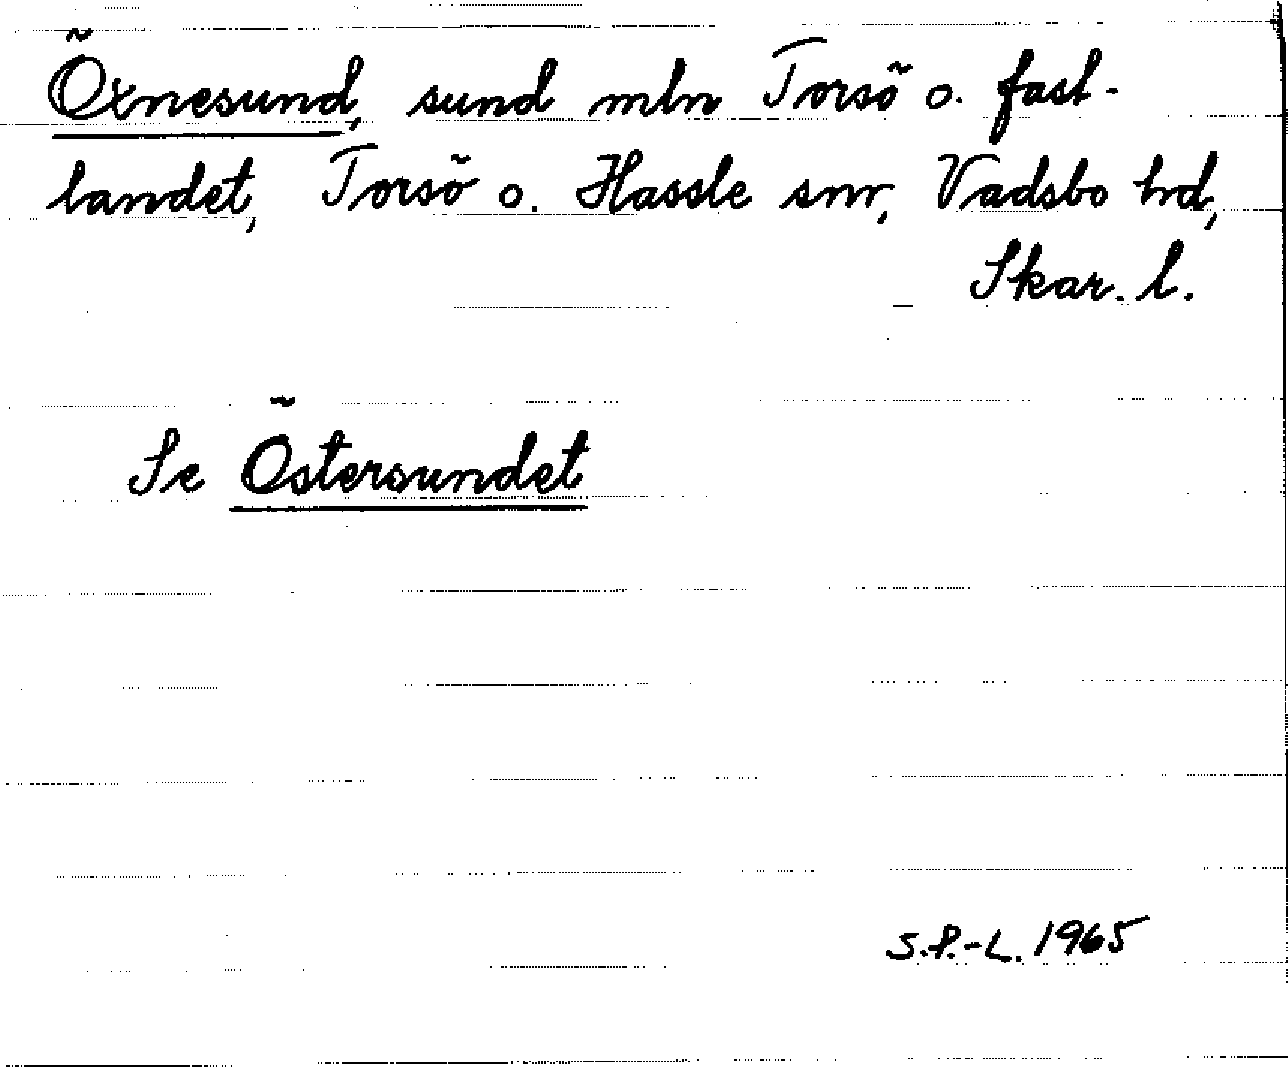 Öxnesund, sund mln Torsö o. fast-
landet, Torsö o. Hassle snr, Vadsbo hd,
Skar. l.
Se Östersundet
S.P.-L. 1965